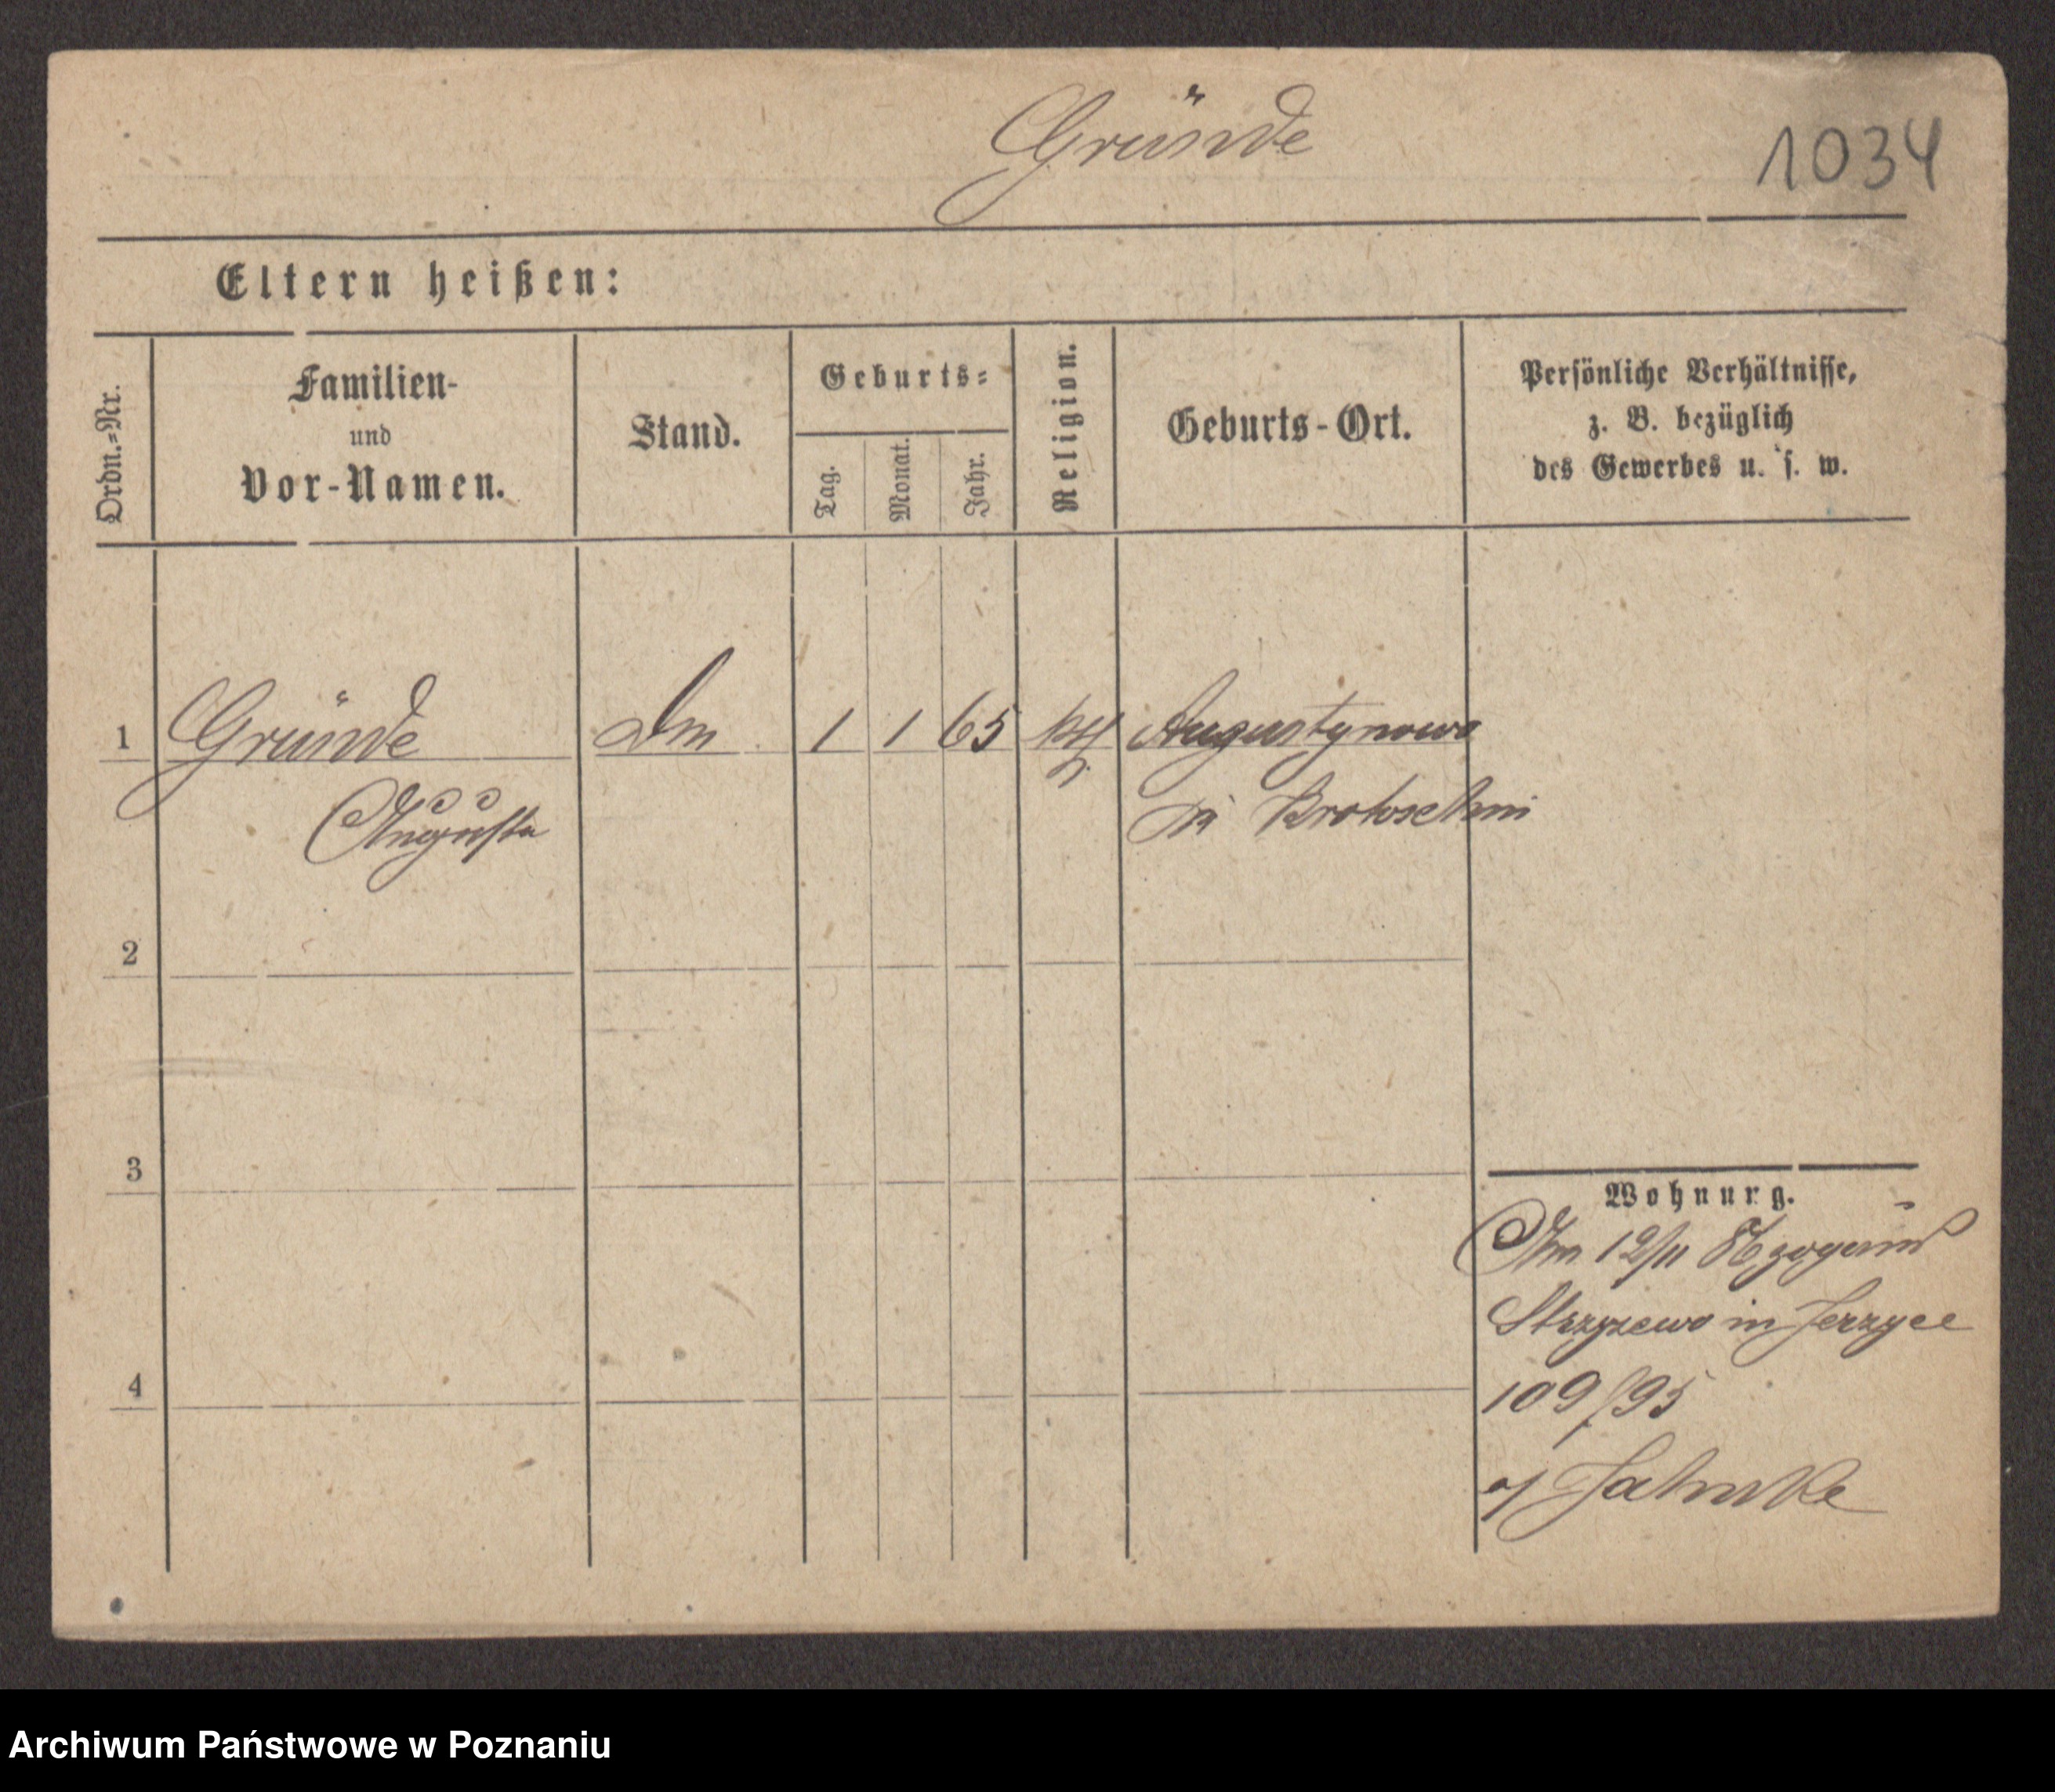 Gründe
1034
Eltern heißen:
Ordn.=Nr.
Familien-
und
Vor-Namen.
Stand.
Geburts=
Tag.
Monat.
Jahr.
Religion.
Geburts-Ort.
Persönliche Verhältnisse,
z. B. bezüglich
des Gewerbes u. s. w.
1 Gründe Dm 1 1 65 Augustynowo
Augusta Krotoschin
2
3
4
Wohnurg.
Am 12/11
Strzyzewo in Jerzyce
109/95
Jahnke
Archiwum Państwowe w Poznaniu